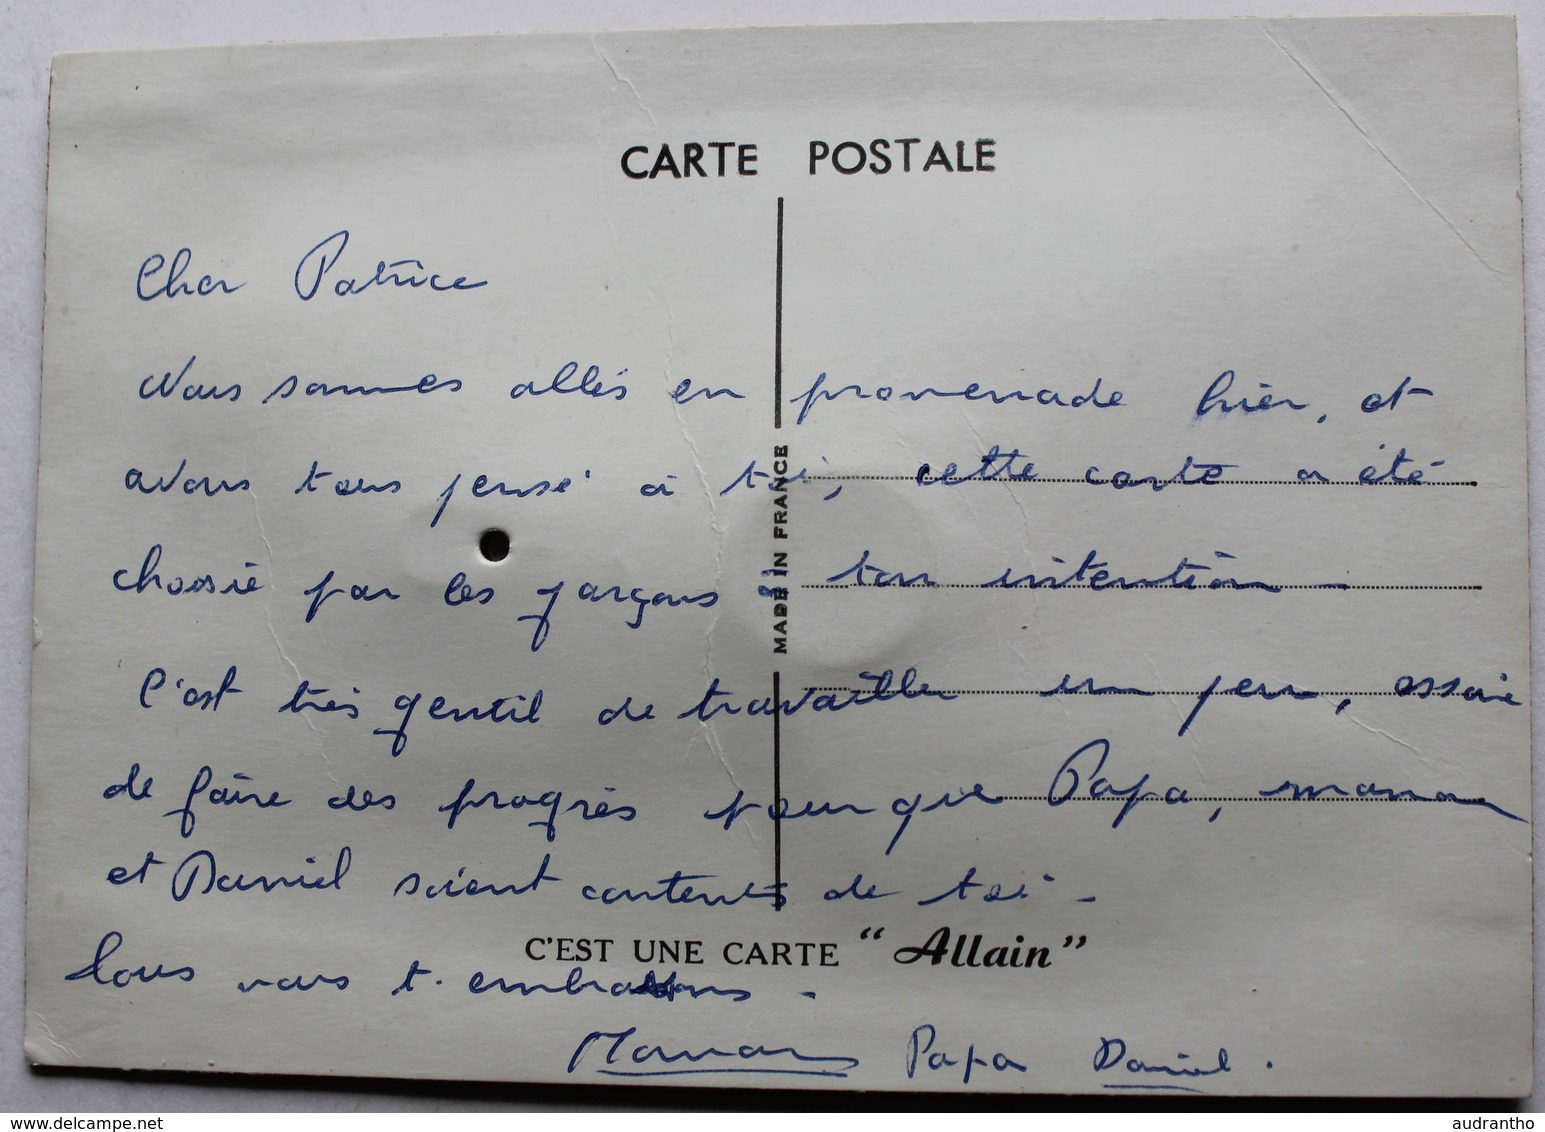 CARTE POSTALE
Cher Patrice
Nous sommes allés en promenade hier, et
avons tous pensé à toi, cette carte a été
choisie par les garçons à ton intention -
C'est très gentil de travailler un peu, essaie
de faire des progrès pour que Papa, maman
et Daniel soient contents de toi -
Tous nous t'embrassons -
Maman Papa Daniel.
MADE IN FRANCE
C'EST UNE CARTE "Allain"
delcampe.net
audrantho